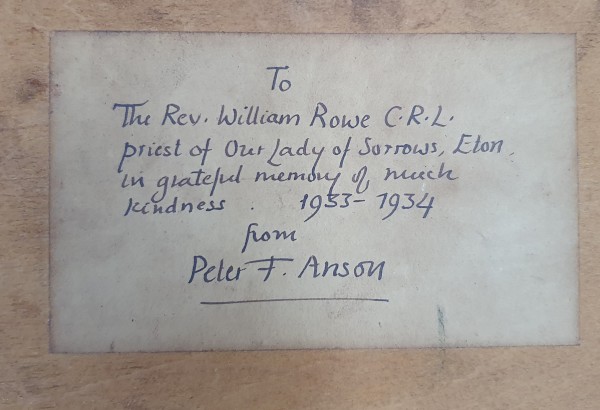 To
The Rev. William Rowe C.R.L.
priest of Our Lady of Sorrows, Eton
in grateful memory of much
kindness . 1933-1934
from
Peter F. Anson